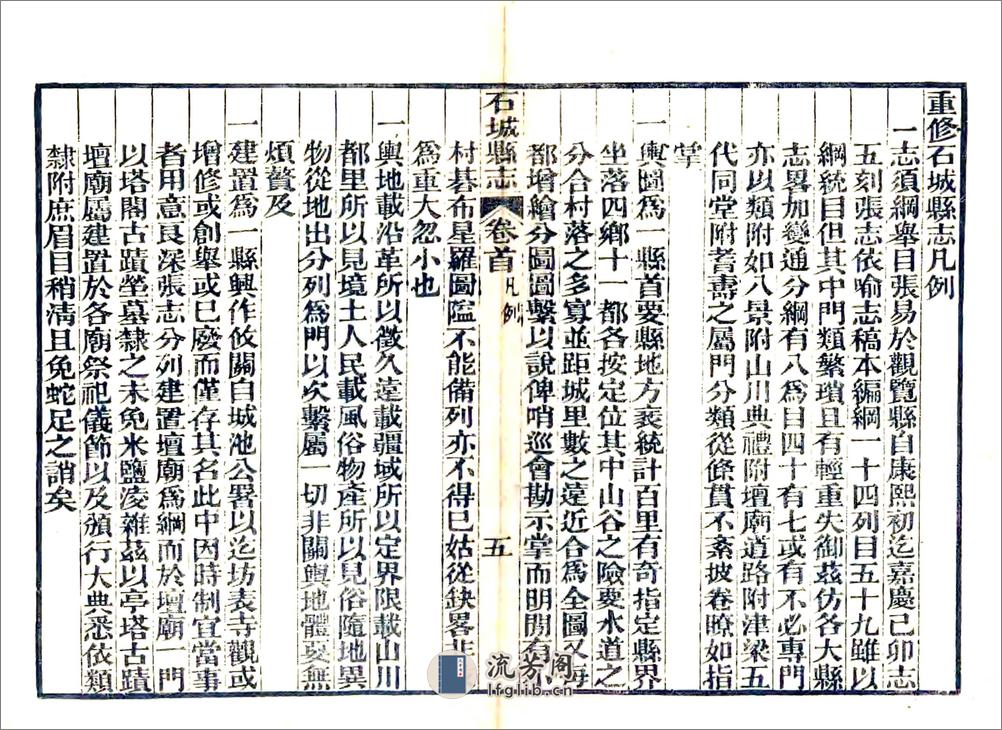 重修石城縣志凡例
一志須綱舉目張易於觀覽縣自康熙初迄嘉慶己卯志
五刻張志依喻志稿本編綱一十四列目五十九雖以
綱統目但其中門類繁瑣且有輕重失御茲仿各大縣
志畧加變通分綱有八爲目四十有七或有不必專門
亦以類附如八景附山川典禮附壇廟道路附津梁五
代同堂附耆壽之屬門分類從條貫不紊披卷瞭如指
掌
一輿圖爲一縣首要縣地方袤統計百里有奇指定縣界
坐落四鄉十一都各按定位其中山谷之險要水道之
分合村落之多寡並距城里數之遠近合爲全圖又每
都增繪分圖圖繫以說俾哨巡會勘示掌而明間有
石城縣志
卷首
凡例
五
村碁布星羅圖隘不能備列亦不得已姑從缺畧非
爲重大忽小也
一輿地載沿革所以徵久遠載疆域所以定界限載山川
都里所以見境土人民載風俗物產所以見俗隨地異
物從地出分列爲門以次繫屬一切非關輿地體要無
煩贅及
一建置爲一縣興作攸關自城池公署以迄坊表寺觀或
增修或創舉或已廢而僅存其名此中因時制宜當事
者用意良深張志分列建置壇廟爲綱而於壇廟一門
以塔閣古蹟塋墓隸之未免米鹽凌雜茲以亭塔古蹟
壇廟屬建置於各廟祭祀儀節以及頒行大典悉依類
隸附庶眉目稍清且免蛇足之誚矣
流芳阁
lfglib.cn